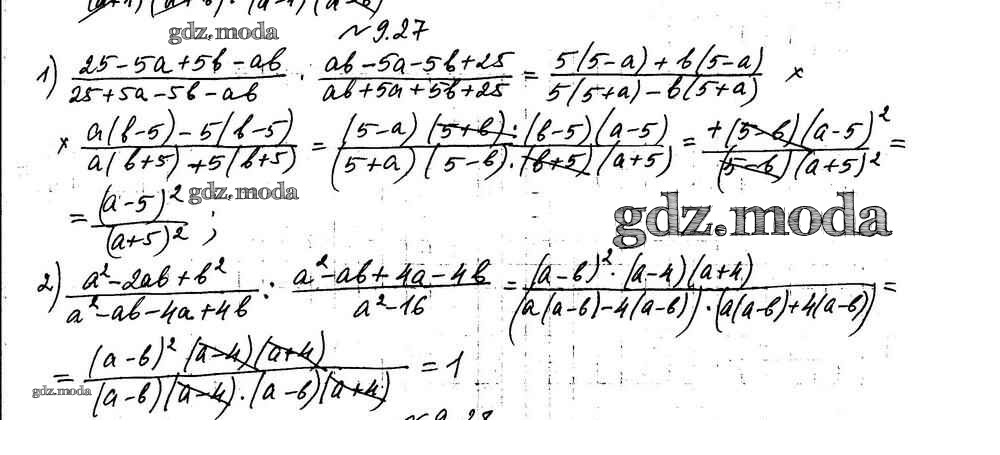 № 9.27
gdz.moda
1) (25-5a+5b-ab)/(25+5a-5b-ab) · (ab-5a-5b+25)/(ab+5a+5b+25) = (5(5-a)+b(5-a))/(5(5+a)-b(5+a)) ×
× (a(b-5)-5(b-5))/(a(b+5)+5(b+5)) = ((5-a)(5+b)·(b-5)(a-5))/((5+a)(5-b)·(b+5)(a+5)) = (+(5-b)(a-5)²)/((5-b)(a+5)²) =
= (a-5)²/(a+5)² ;
gdz.moda
gdz.moda
2) (a²-2ab+b²)/(a²-ab-4a+4b) : (a²-ab+4a-4b)/(a²-16) = ((a-b)²·(a-4)(a+4))/((a(a-b)-4(a-b))·(a(a-b)+4(a-b))) =
= ((a-b)²(a-4)(a+4))/((a-b)(a-4)·(a-b)(a+4)) = 1
gdz.moda